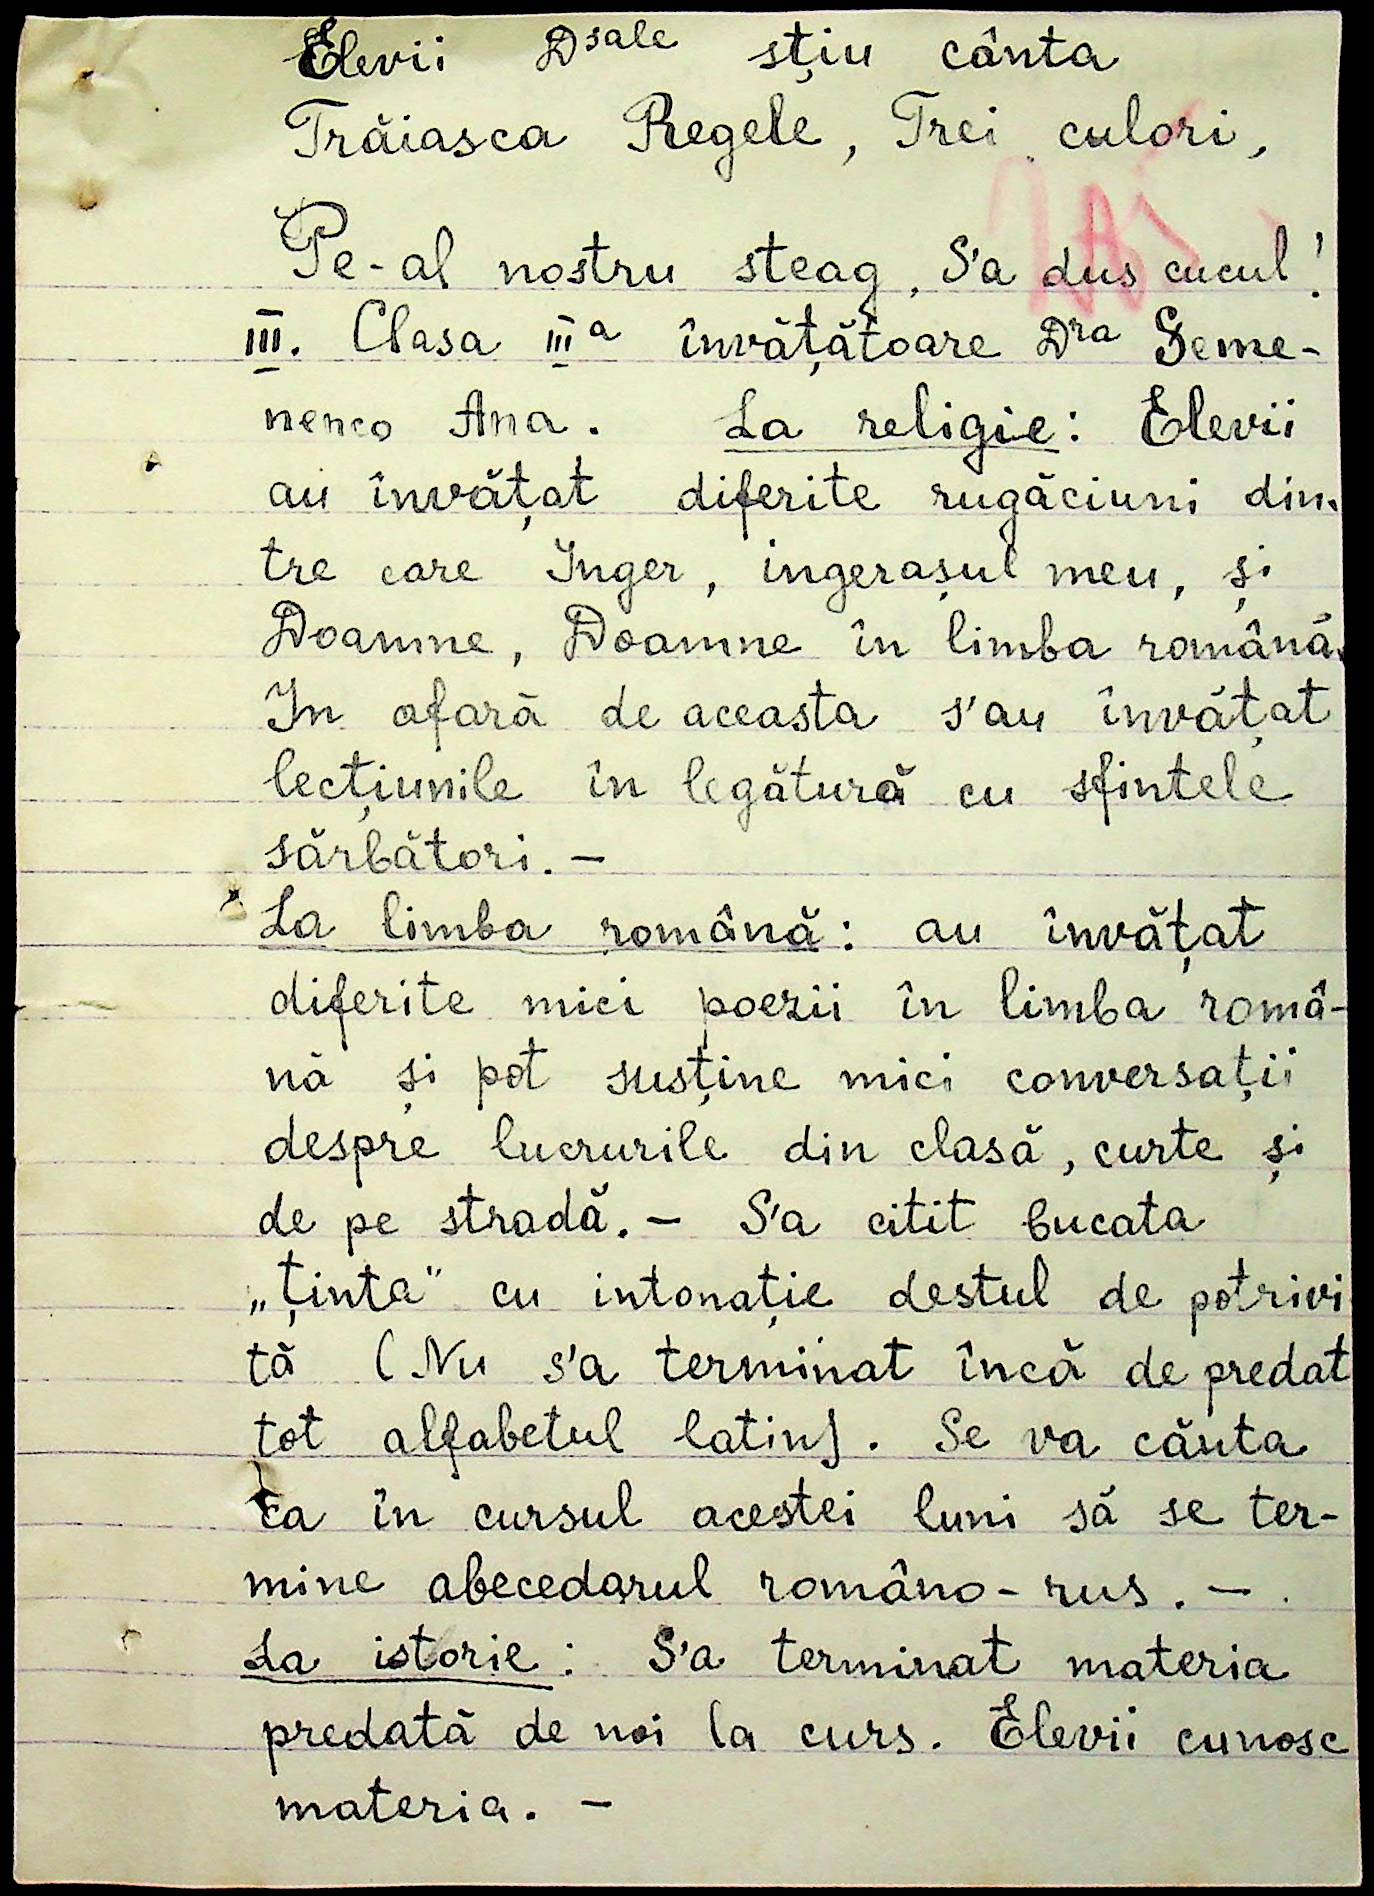 Elevii Dsale stiu cânta
Trăiasca Regele, Trei culori,
Pe-al nostru steag, S'a dus cucul!
III. Clasa IIIa învățătoare Dra Seme-
nenco Ana. La religie: Elevii
au învățat diferite rugăciuni din-
tre care Inger, ingerașul meu, și
Doamne, Doamne în limba română.
In afară de aceasta s'au învățat
lecțiunile în legătură cu sfintele
sărbători. —
La limba română: au învățat
diferite mici poezii în limba româ-
nă și pot susține mici conversații
despre lucrurile din clasă, curte și
de pe stradă. — S'a citit bucata
„Ținta" cu intonație destul de potrivi
tă (Nu s'a terminat încă de predat
tot alfabetul latin). Se va căuta
ca în cursul acestei luni să se ter-
mine abecedarul româno-rus. —
La istorie: S'a terminat materia
predată de noi la curs. Elevii cunosc
materia. —